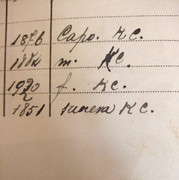 1876 Capo. K.C.
1884 m. K.C.
1920 f. K.C.
1851 K.C.